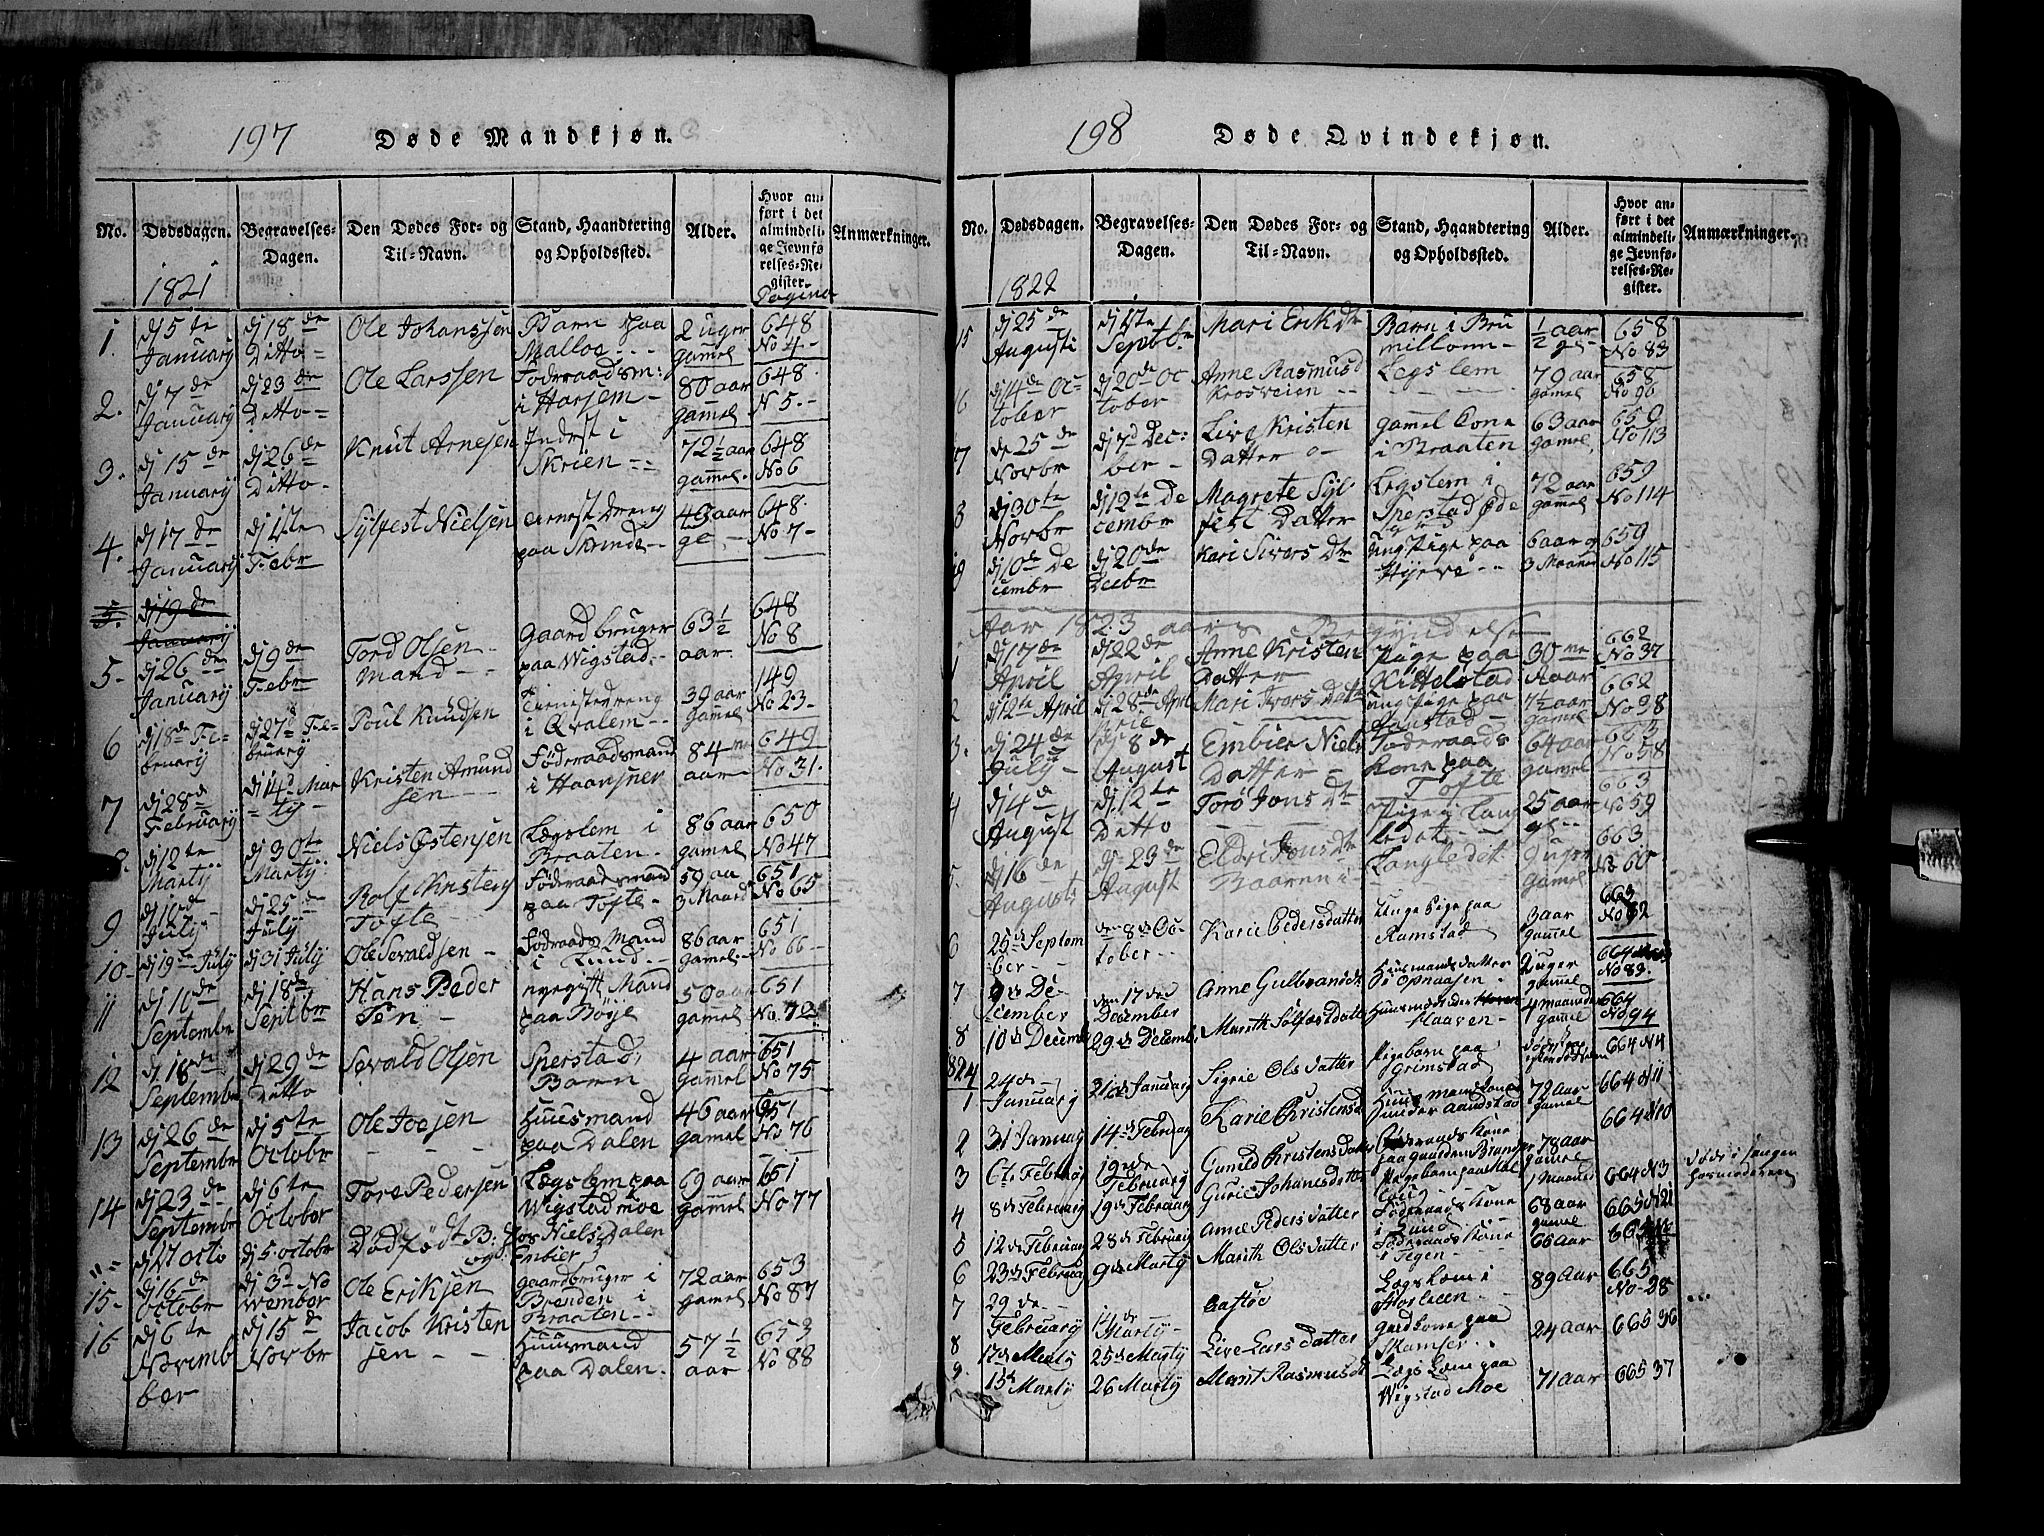 197 Døde Mandkjøn.
No. Dødsdagen. Begravelses-Dagen. Den Dødes For- og Til-Navn. Stand, Haandtering og Opholdssted. Alder. Hvor anført i det almindelige Jevnførelses-Register. Anmærkninger.
1821 Pagina
1. dj 5te January dj 18de Ditto Ole Johanssen Barn paa Malloe 2 uger gamel 648 No 4
2. dj 7de January dj 23de Ditto Ole Larssen Föderaadsm: i Harsem 80 aar gamel 648 N 5
3. dj 15de January dj 26de Ditto Knut Arnesen Inderst i Skrien 72½ aar gamel 648 No 6
4. dj 17de January dj 1ste Febr Sylfest Nielsen Tienest Dreng paa Skrinde 49 aar gl 648 No 7
5. dj 19de January
5 dj 26de January dj 9de Febr Tord Olsen Mand Gaardbruger paa Wigstad 63½ aar 648 No 8
6 dj 18de Februarij dj 27d Februarij Poul Knudsen Tienestdreng i Qvalem 39 aar gamel 149 No 23
7 dj 28d February dj 14d Marty Kristen Amundsen Föderaadsmand i Haansnes 84 aar 649 No 31
8. dj 12te Marty dj 30te Marty Niels Østensen Lægslem i Braaten 86 aar gamel 650 No 47
9 dj 10de July dj 25de July Rolf Kristens Tofte Föderaadsmand paa Tofte 59 aa 3 Maand 651 No 65
10 dj 19de July dj 31 July Ole Sevaldsen Föderaads Mand i Lund 86 aar gamel 651 No 66
11 dj 11de Septembr dj 18de Septbr Hans Peder Sön nygift Mand paa Böye 50 aar gamel 651 No. 72
12 dj 18de Septembr dj 29de Ditto Sevald Olsen Sperstad Barn 4 aar gamel 651 No 75
13 dj 26de Septembr dj 5te Octobr Ole Joesen Huusmand paa Dalen 46 aar gamel 651 No 76
14 dj 23de Septembr dj 6te October Tore Pedersen Lægslem paa Wigstadmoe 69 aar gamel 651 No 77
dj 4t Octo dj 5 octobr Dödfödt B: Jos Nielsdalen og Enbier
15 dj 16de octobr dj 3d November Ole Eriksen Gaardbruger i Brenden i Braaten 72 aar gamel 653 No 87
16 dj 6te November dj 15de Novbr Jacob Kristensen Huusmand paa Dalen. 57½ aar 653 No 88
198 Døde Qvindekjøn.
No. Dødsdagen. Begravelses-Dagen. Den Dødes For- og Til-Navn. Stand, Haandtering og Opholdssted. Alder. Hvor anført i det almindelige Jevnførelses-Register. Anmærkninger.
1822
15 dj 25de Augusti dj 1ste Septbr Mari Erik Dtr Barn i Brumillonn ½ aar gl 658 No 83
16 dj 14de October dj 20de October Anne Rasmusd Krosveien Legslem 79 aar gamel 658 No 96
17 de 25de Novbr dj 7d Decber Live Kristen Datter Gammel Cone i Braaten 63 aar gamel 659 No 113
18 dj 30te Novbr dj 12te Decembr Magrete Sylfest Datter Legslem i Sperstad Øde 72 aar gamel 659 No 114
19 dj 10de Decembr dj 20de Decbr Kari Sivers Dtr ung Pige paa Hyrve 6 aar og 3 Maaned 659 No 115
Aar 1823 aars Begyndelse
1 dj 17de April dj 22de April Anne Kristen Datter Pige paa Kittelstad 30 aar 662 No 37
2 dj 12te April dj 28de April Mari Ivors Datr ung Pige paa Ramstad 7½ aar gamel 662 No 38
3. dj 24de July dj 8de August Embier Niels Datter Föderaads Kone paa Tofte 64 aar gamel 663 No 58
4 dj 4de August dj 12te Ditto Torö Jons Dtr Pige i Langledet 25 aar gl 663 No 59
5. dj 16de Augusts dj 23de August Eldri Jons Dtr Baaren i Langledet 2 uger gamel 663 No 60
6 25de September den 8de October Karie Pedersdatter Unge Pige paa Ramstad 3 aar gamel 663 No 62
7 9de December den 17de December Anne Gulbrandsdtr Huusmandsdatter i Opnaasen 2 uger gammel 664 No 83
8 10de Decemb 29de Decemb Marith Sölfestdatter Huusmand Maaren 4 maaneder gammel 664 No 94
1824
1 24de January 31de January Sigrie Ols datter Pigebarn paa Grimstad 664 N 4
2 31 January 14de February Karie Christensd Huusmands Kone under Aandstad 72 Aar gamel 664 N 11
3 6te February 19de February Gunild Christensdatter Föderaads kone paa gaarden Brandne 78 aar gamel 664 N 10
4 8de February 19de February Gurie Johanesdatter Pigebarn paa 1 Maaned 664 N 13 Döde i Sengen hos moderen
5 12de February 28de February Anne Peders datter Föderaads Kone i Lund 68 aar gamel 665 N 21
6 23de Februa 9de Marty Marith Ols datter Föderaads Kone i Tegen 66 Aar 665
7 29de February 14de Marty Aastöe Lægs Lem i Horsleen 89 Aar 665 No 28
8 17de Marty 25de Marty Live Lars datter Gard Kone paa Skamser 24 Aar 665 36
9 15de Marty 26 Marty Marit Rasmusdtr Lægs Lem paa Wigstad Moe 71 Aar 665 37